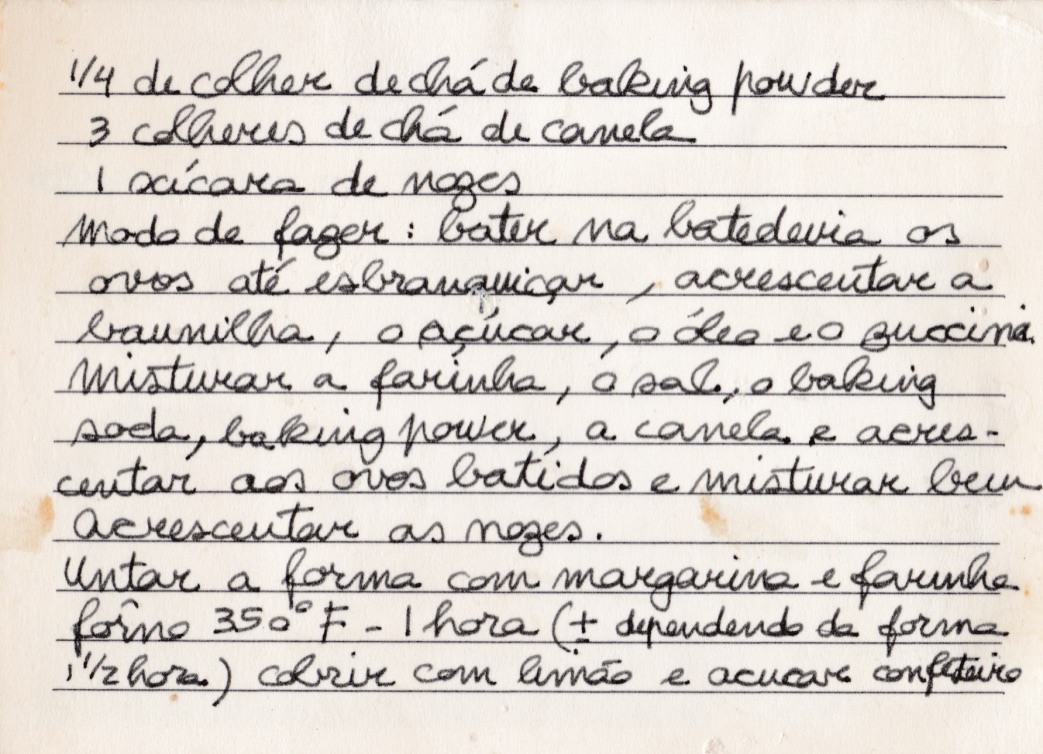 1/4 de colher de chá de baking powder
3 colheres de chá de canela
1 xícara de nozes
Modo de fazer: bater na batedeira os
ovos até esbranquiçar, acrescentar a
baunilha, o açúcar, o óleo e o zuccini.
Misturar a farinha, o sal, o baking
soda, baking power, a canela e acres-
centar aos ovos batidos e misturar bem
Acrescentar as nozes.
Untar a forma com margarina e farinha
fôrno 350° F - 1 hora (± dependendo da forma
1 1/2 hora.) cobrir com limão e acucar confeteiro